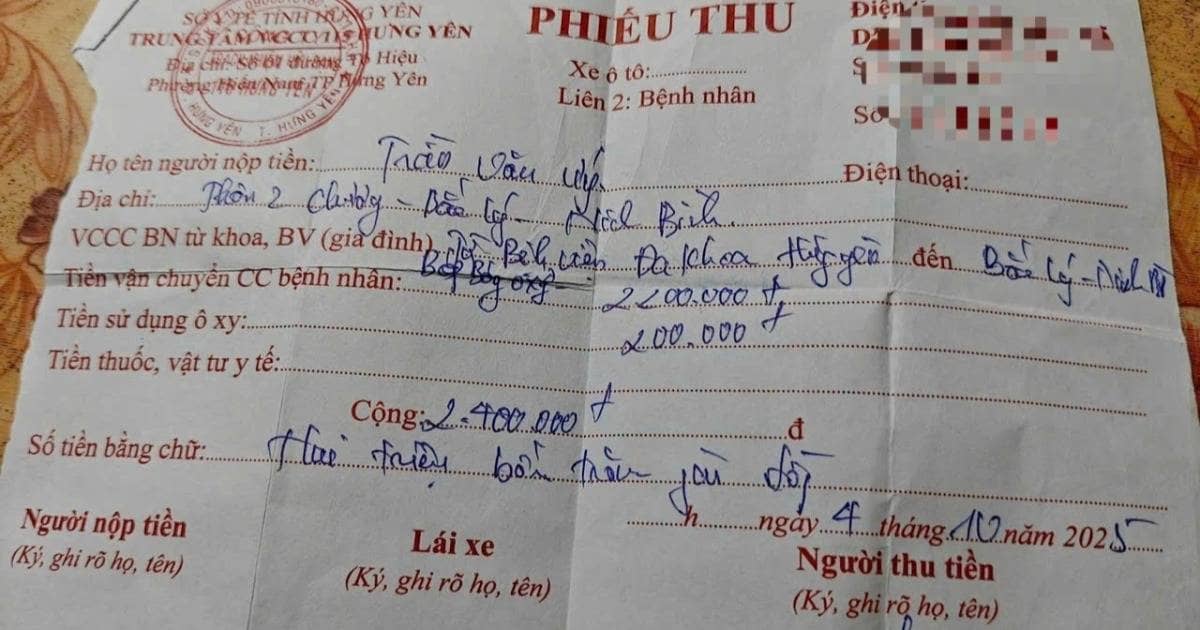 SỞ Y TẾ TỈNH HƯNG YÊN
TRUNG TÂM HƯNG YÊN
Địa chỉ: Số 01 đường Tô Hiệu
Phường Hiến Nam, TP Hưng Yên
PHIẾU THU
Xe ô tô:
Liên 2: Bệnh nhân
Điện
Số
Họ tên người nộp tiền: Trần Văn
Điện thoại:
Địa chỉ: Thôn 2 - Bắc Lý - Ninh Bình
VCCC BN từ khoa, BV (gia đình) Bệnh viện Đa khoa Hưng yên đến Bắc Lý - Ninh
Tiền vận chuyển CC bệnh nhân: 2200.000 đ
Tiền sử dụng ô xy: 200.000 đ
Tiền thuốc, vật tư y tế:
Cộng: 2.400.000 đ đ
Số tiền bằng chữ: Hai triệu bốn trăm đồng
h ngày 4 tháng 10 năm 2025
Người nộp tiền
(Ký, ghi rõ họ, tên)
Lái xe
(Ký, ghi rõ họ, tên)
Người thu tiền
(Ký, ghi rõ họ, tên)